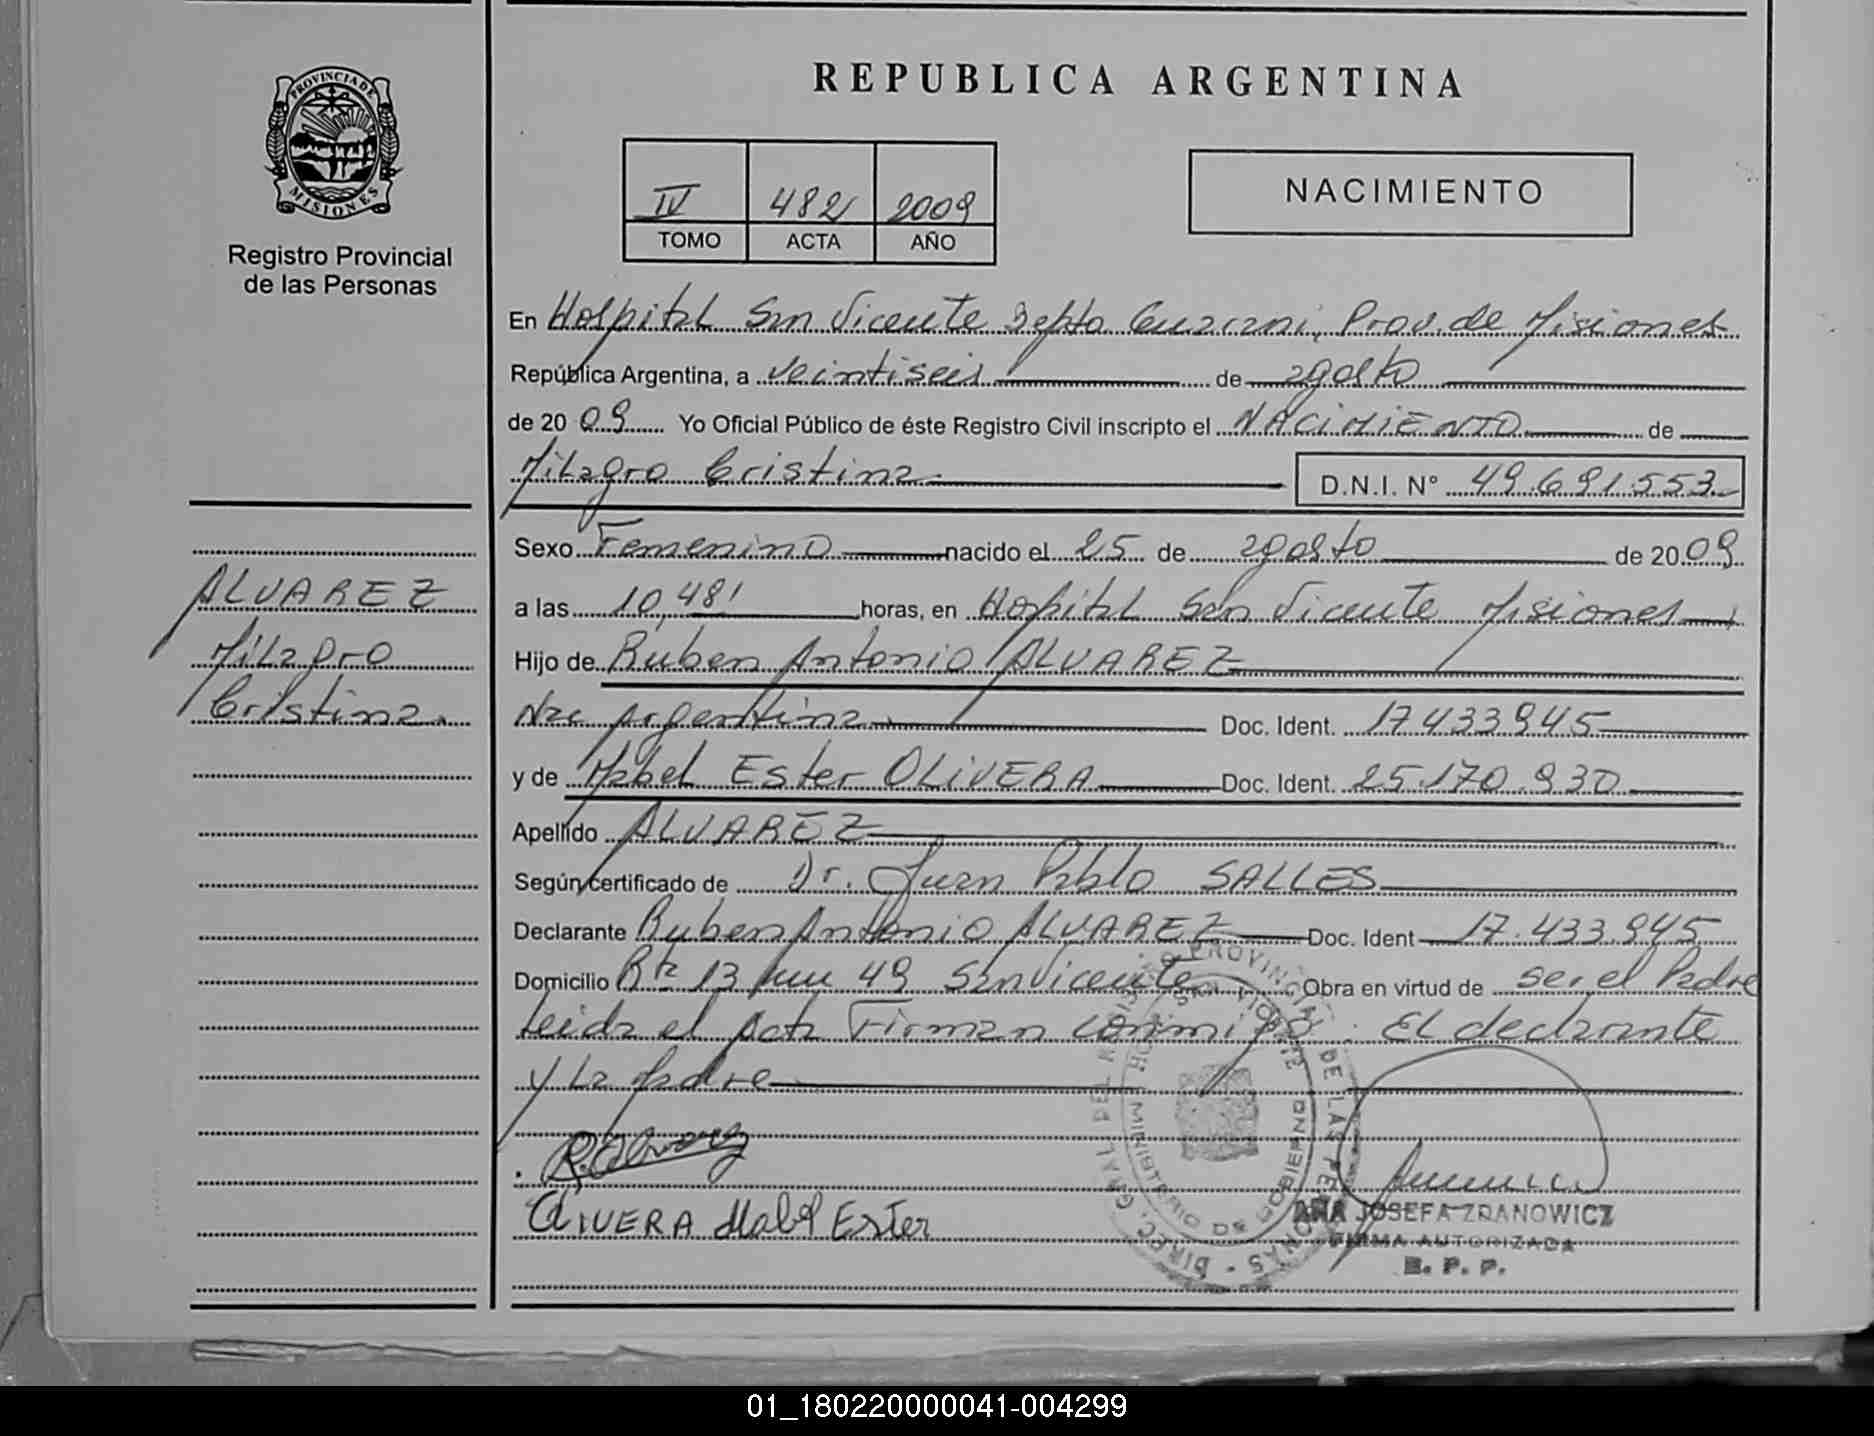 PROVINCIA DE
MISIONES
Registro Provincial
de las Personas
REPUBLICA ARGENTINA
IV 482 2009
TOMO ACTA AÑO
NACIMIENTO
En Hospital San Vicente Depto Guarani, Prov. de Misiones
República Argentina, a veintiseis de agosto
de 2009 Yo Oficial Público de éste Registro Civil inscripto el NACIMIENTO de
Milagro Cristina D.N.I. N° 49.691.553
Sexo Femenino nacido el 25 de agosto de 2009
a las 10,48' horas, en Hospital San Vicente Misiones
Hijo de Ruben Antonio ALVAREZ
Nac Argentina Doc. Ident. 17.433.945
y de Mabel Ester OLIVERA Doc. Ident. 25.170.930
Apellido ALVAREZ
Según certificado de Dr. Juan Pablo SALLES
Declarante Ruben Antonio ALVAREZ Doc. Ident 17.433.945
Domicilio Rta 13 km 49 San Vicente Obra en virtud de ser el Padre
Leida el Acta Firman conmigo: El declarante
y La Madre
R. Alvarez
OLIVERA Mabel Ester
ALVAREZ
Milagro
Cristina.
DIREC. GRAL DEL REGISTRO PROVINCIAL DE LAS PERSONAS
HOSPITAL SAN VICENTE
MINISTERIO DE GOBIERNO
ANA JOSEFA ZDANOWICZ
FIRMA AUTORIZADA
R. P. P.
01_180220000041-004299